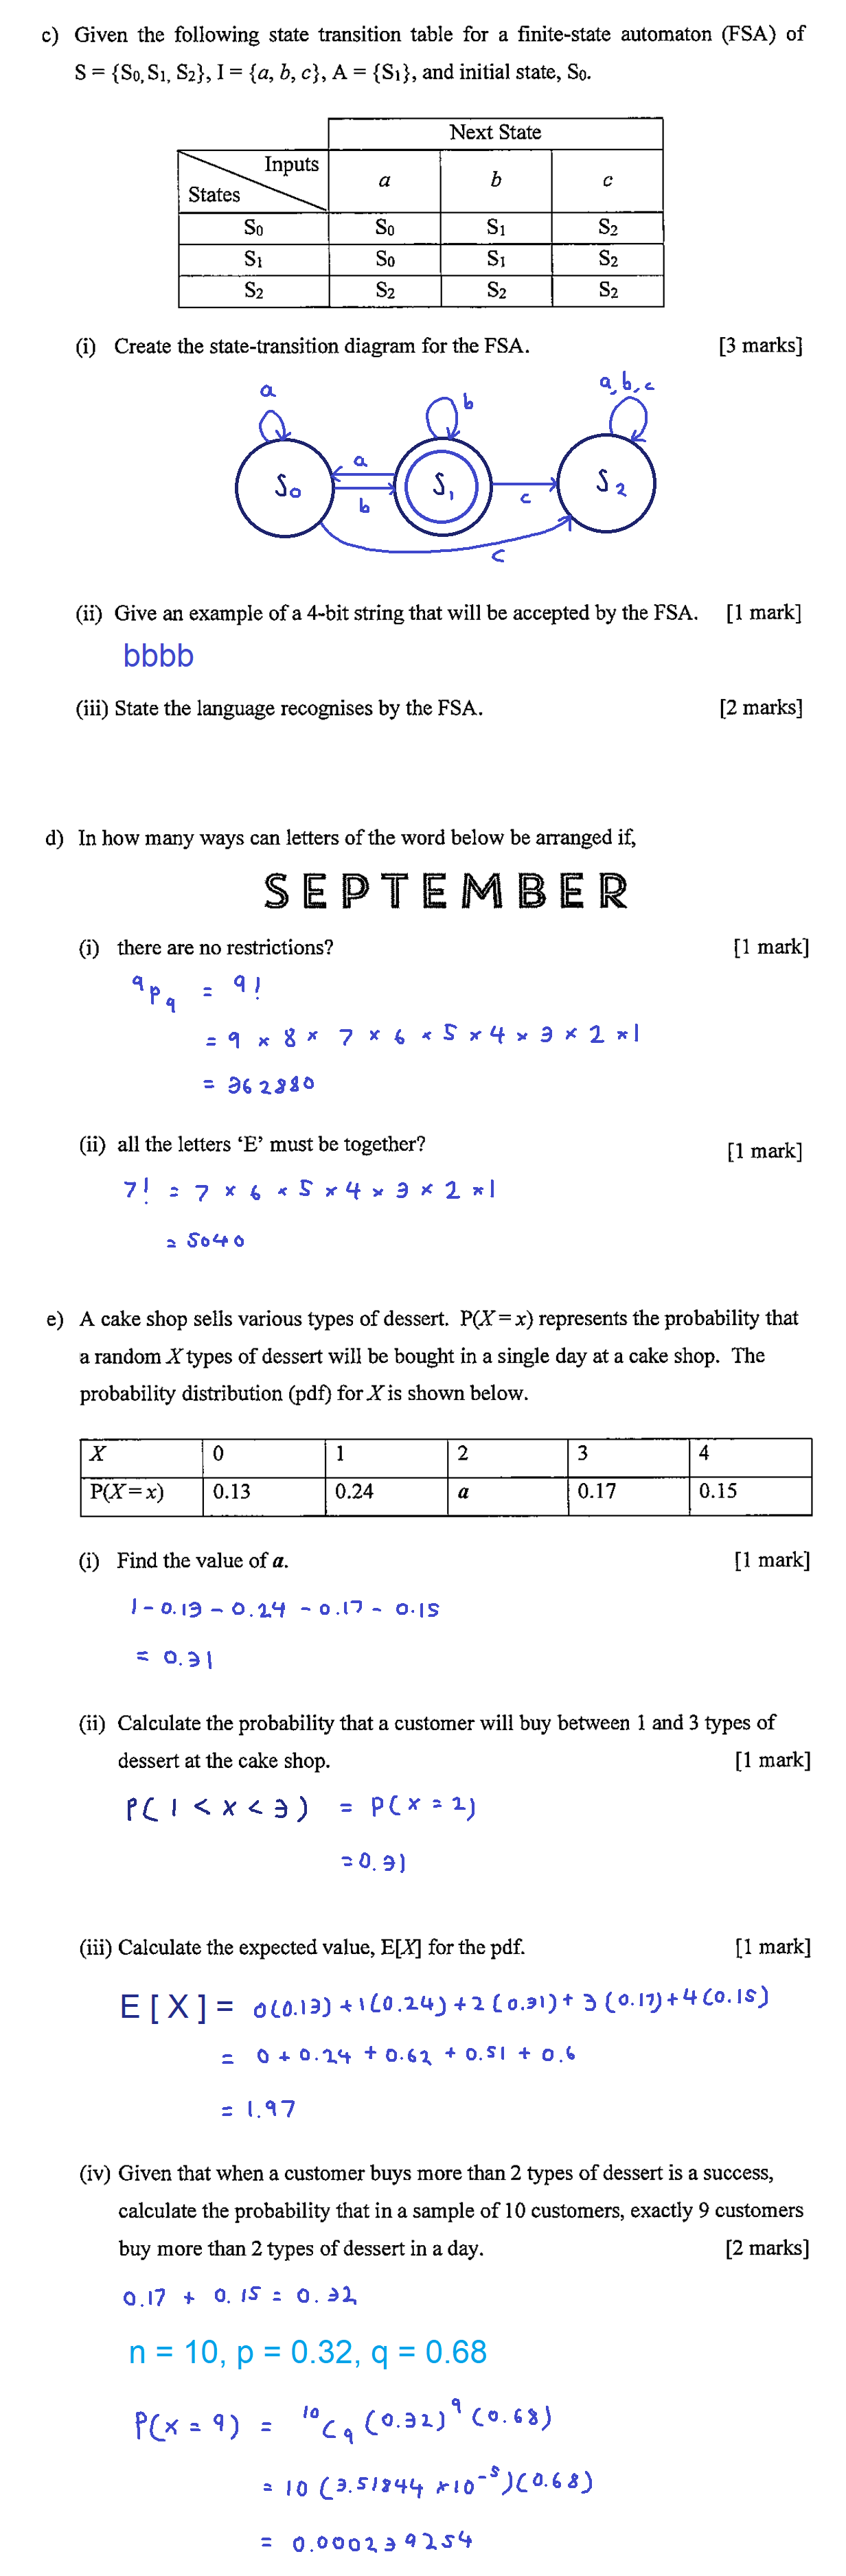 c) Given the following state transition table for a finite-state automaton (FSA) of
S = {S₀, S₁, S₂}, I = {a, b, c}, A = {S₁}, and initial state, S₀.
Next State
Inputs
States
a b c
S₀ S₀ S₁ S₂
S₁ S₀ S₁ S₂
S₂ S₂ S₂ S₂
(i) Create the state-transition diagram for the FSA. [3 marks]
a b a, b, c
S₀ a b S₁ c S₂
c
(ii) Give an example of a 4-bit string that will be accepted by the FSA. [1 mark]
bbbb
(iii) State the language recognises by the FSA. [2 marks]
d) In how many ways can letters of the word below be arranged if,
SEPTEMBER
(i) there are no restrictions? [1 mark]
⁹P₉ = 9!
= 9 × 8 × 7 × 6 × 5 × 4 × 3 × 2 × 1
= 362880
(ii) all the letters ‘E’ must be together? [1 mark]
7! = 7 × 6 × 5 × 4 × 3 × 2 × 1
= 5040
e) A cake shop sells various types of dessert. P(X = x) represents the probability that
a random X types of dessert will be bought in a single day at a cake shop. The
probability distribution (pdf) for X is shown below.
X 0 1 2 3 4
P(X = x) 0.13 0.24 a 0.17 0.15
(i) Find the value of a. [1 mark]
1 - 0.13 - 0.24 - 0.17 - 0.15
= 0.31
(ii) Calculate the probability that a customer will buy between 1 and 3 types of
dessert at the cake shop. [1 mark]
P(1 < X < 3) = P(X = 2)
= 0.31
(iii) Calculate the expected value, E[X] for the pdf. [1 mark]
E[X] = 0(0.13) + 1(0.24) + 2(0.31) + 3(0.17) + 4(0.15)
= 0 + 0.24 + 0.62 + 0.51 + 0.6
= 1.97
(iv) Given that when a customer buys more than 2 types of dessert is a success,
calculate the probability that in a sample of 10 customers, exactly 9 customers
buy more than 2 types of dessert in a day. [2 marks]
0.17 + 0.15 = 0.32
n = 10, p = 0.32, q = 0.68
P(X = 9) = ¹⁰C₉ (0.32)⁹ (0.68)
= 10 (3.51844 × 10⁻⁵)(0.68)
= 0.000239254